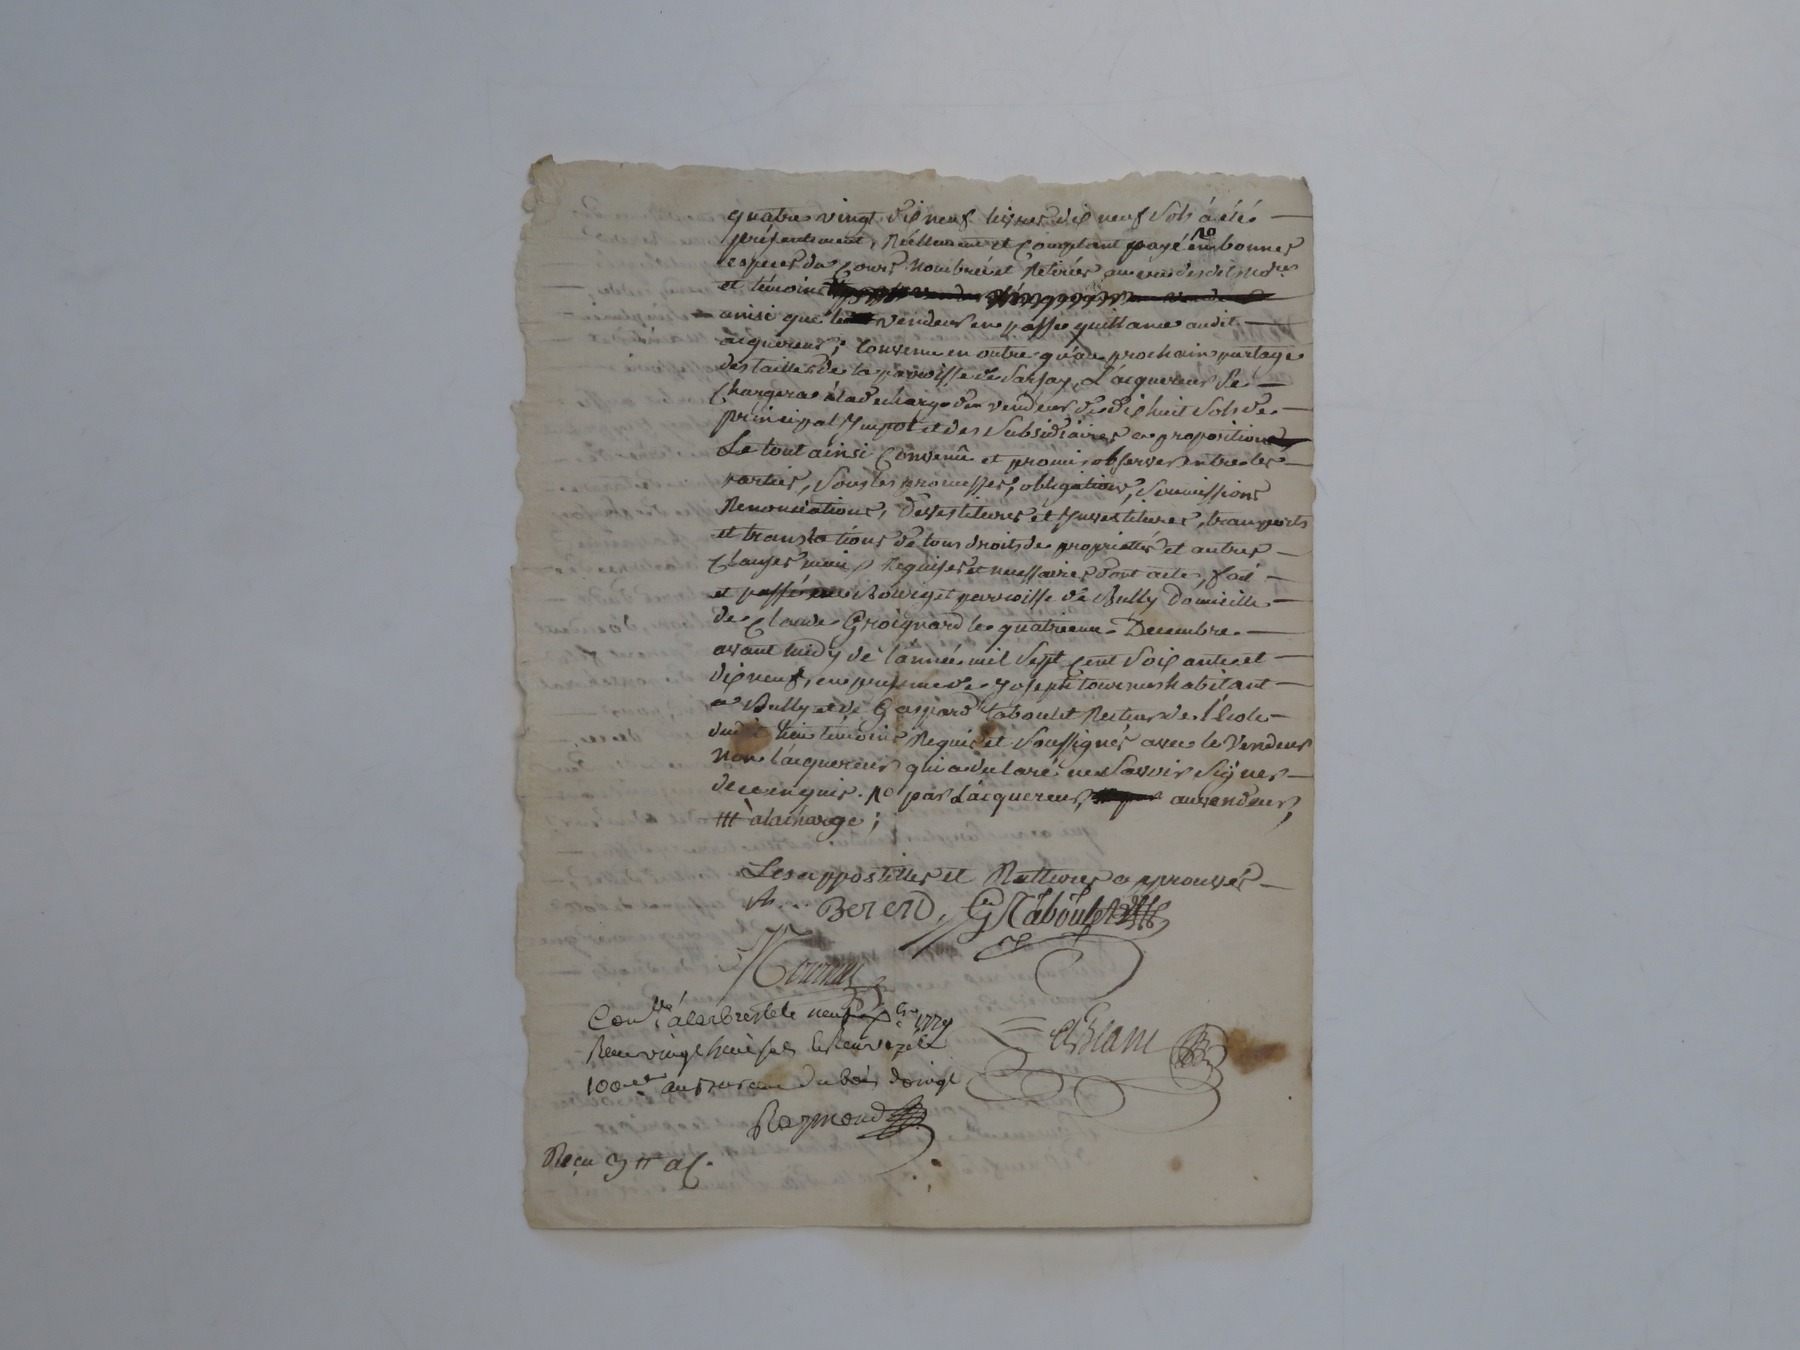 quatre vingt dix neuf livres dix neuf sols à été
présentement, Réellement et Comptant payé no en bonnes
especes du Cours Nombrée et Retirées au vû desdits No.res
et témoins
ainsi que le vendeur en passe quittance audit
acquereur; Convenu en outre qu'au prochain partage
des tailles de la parroisse de Sarsay, L'acquereur se
Chargera à la décharge du vendeur de dix huit sols de
principal Impot et des Subsidiaires a proposition
Le tout ainsi Convenû et promis observer entre les
parties, Sous les promesses, obligations, Soumissions
Renonciations, devestitures et Investitures, transports
et translations de tous droits de proprietés et autres
Clauses mises Requises et necessaires dont acte, fait
et passé au Bourg et parroisse de Bully domicille
de Claude Groignard le quatrieme Decembre
avant midy de l'année mil sept Cent Soixante et
dix neuf, en presence de Joseph tournus habitant
a Bully et de Gaspard taboulet Recteur de l'Ecole
dudit lieu témoins Requis et Soussignés avec le Vendeur
Non l'acquereur qui a declaré ne Savoir Signer
de ce enquis. no par L'acquereur au vendeur,
à la charge;
Les appostilles et Ratures approuvés
Bererd, G Taboulet
Tournus
Con.lé à larbresle le neuf xbre 1779
Reçu vingt huit sols
100me au bureau du bois doingt
Raymond
Reçu 3 tt